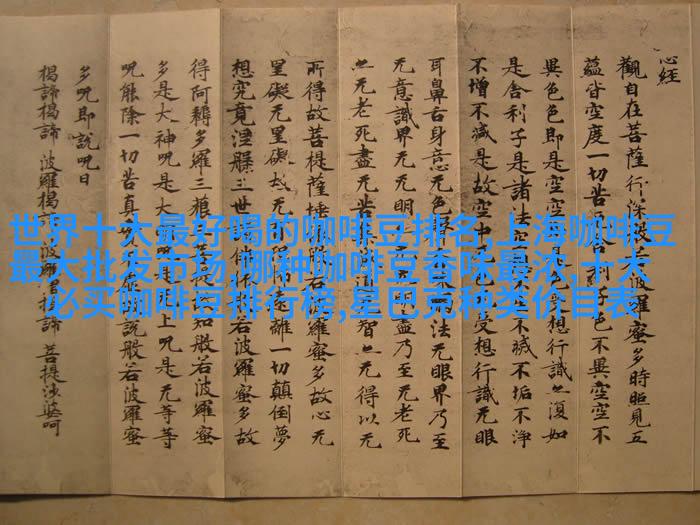 世界十大最好喝的咖啡豆排名,上海咖啡豆
最大批发市场,哪种咖啡豆香味最浓,十大
必买咖啡豆排行榜,星巴克种类价目表
心经
觀自在菩薩行深般若波羅蜜多時照見五
蘊皆空度一切苦利子色不異空空不
異色色即是空空色想行識亦復如
是舍利子是諸法空不滅不垢不淨
不增不減是故空中无色受想行識无眼
耳鼻舌身意无色法无眼界乃至
无意識界无无明盡乃至无老死
亦无老死盡无苦道无智亦无得以无
所得故菩提薩埵波羅蜜多故心无
罣礙无罣礙故无遠離一切顛倒夢
想究竟涅槃三世依般若波羅蜜多故
得阿耨多羅三藐菩提故知般若波羅蜜
多是大神呪是大上呪是无等等
呪能除一切苦真故說般若波羅蜜
多呪即說呪曰
揭諦揭諦 波羅揭諦 揭諦 菩提娑婆呵